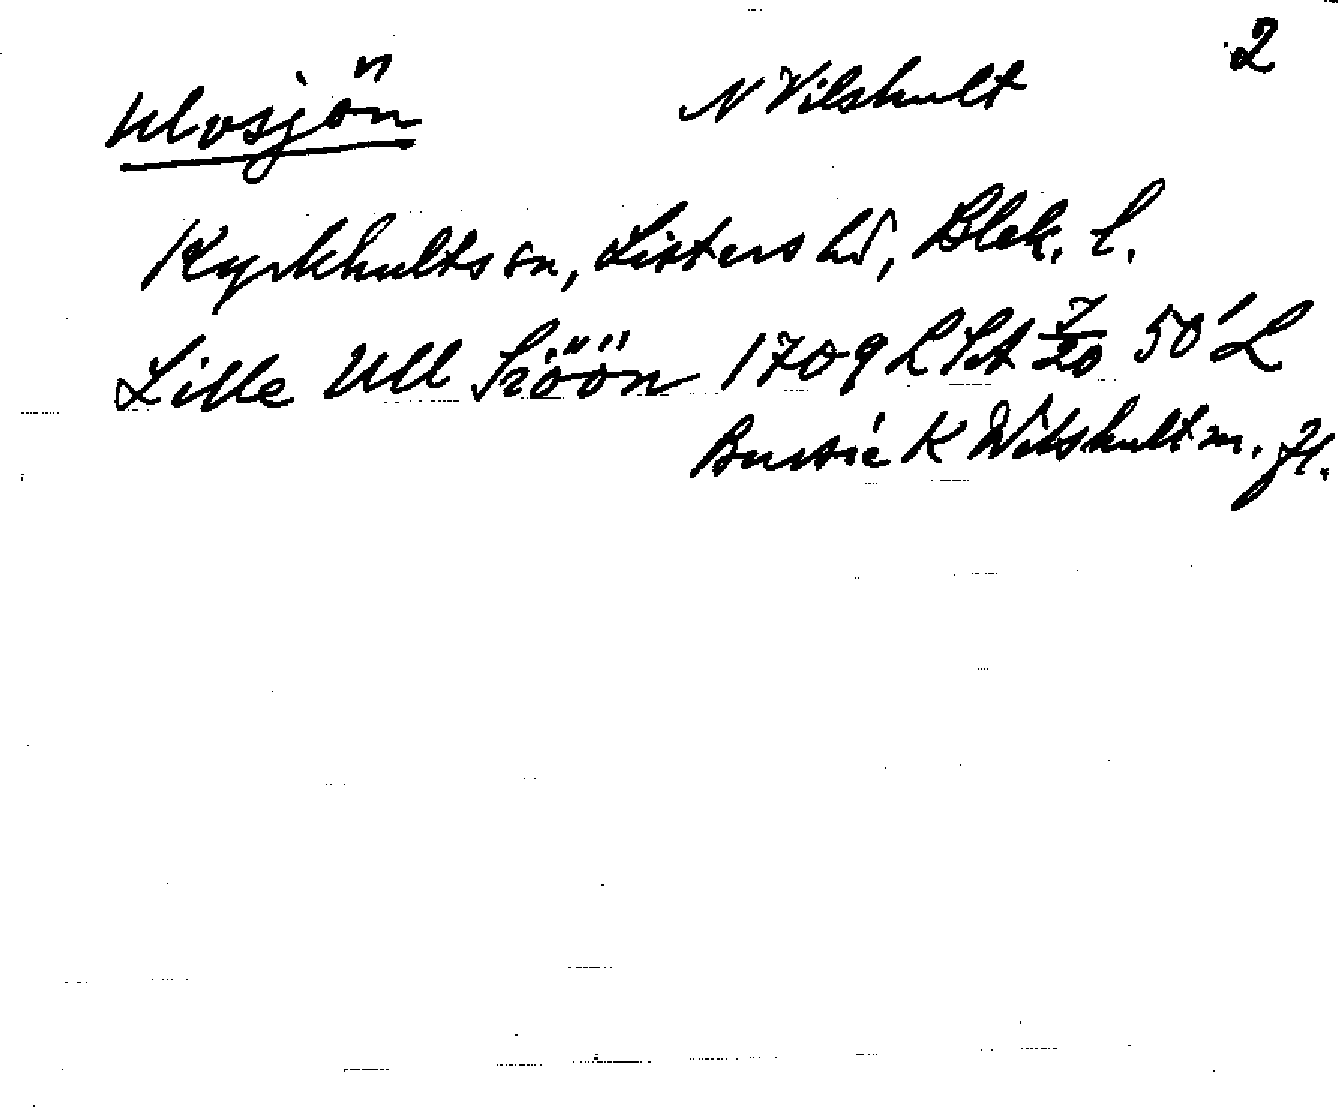 Ulvsjön N Vilshult 2
Kyrkhults sn, Listers hd, Blek. l.
Lille Ull Siöön 1709 LSA 7/20 50' L
K Wilshult m. fl.